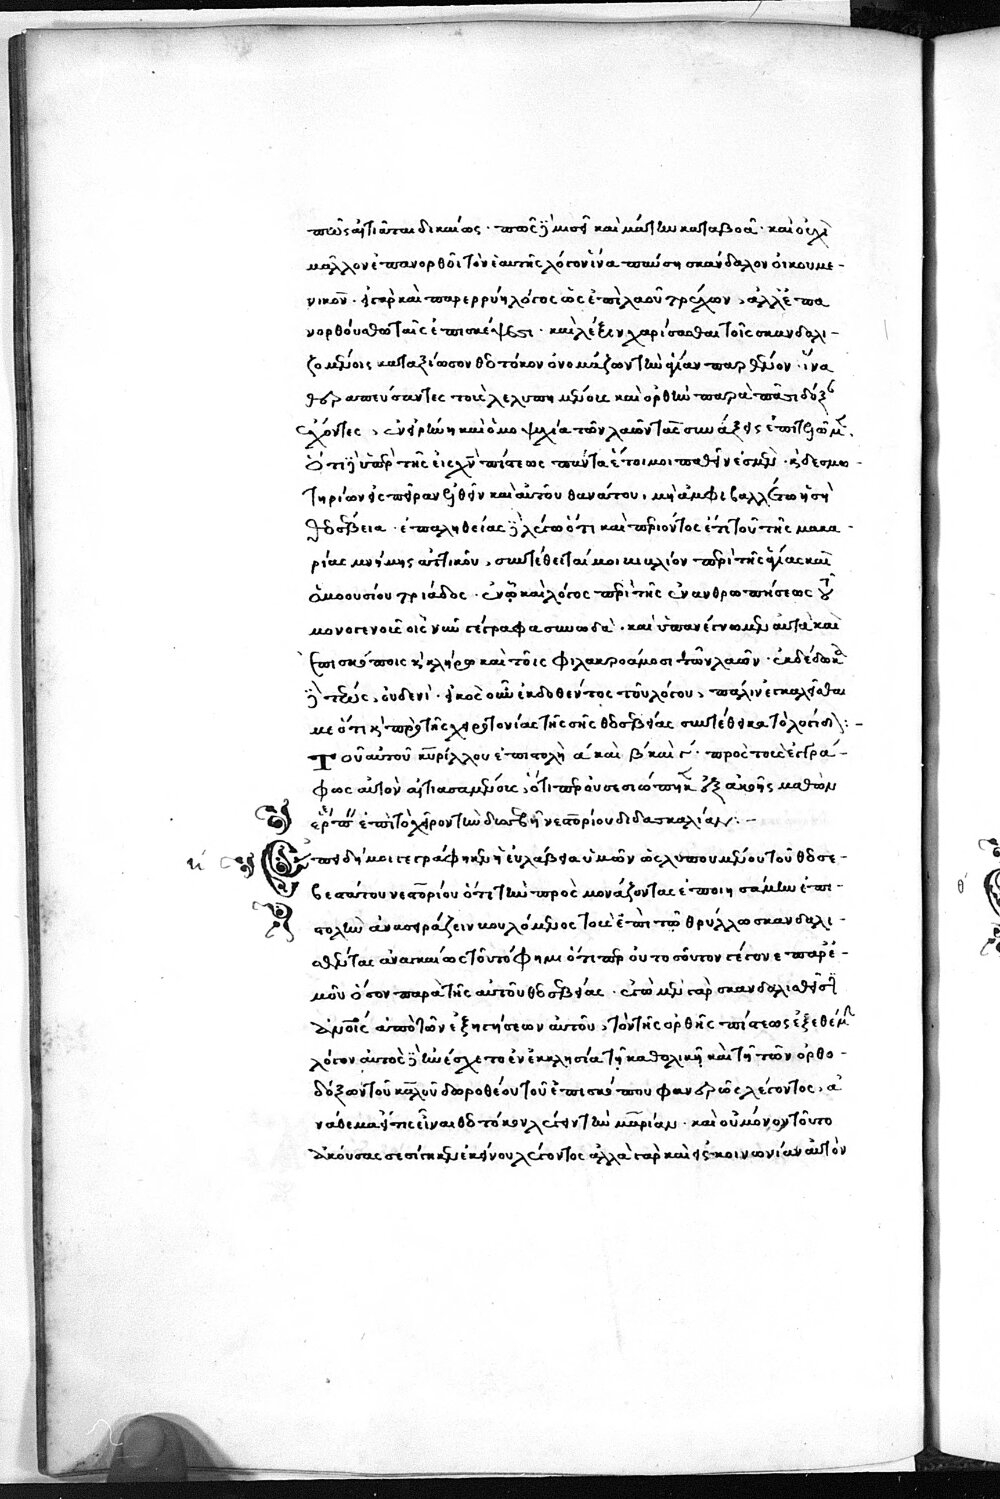 πῶς αἰτιᾶται δικαίως· πῶς δὲ ἡμῖν καὶ μάτην καταβοᾶ· καὶ οὐχὶ
μᾶλλον ἐπανορθοῖ τὸν ἑαυτῆς λόγον ἵνα παύση σκάνδαλον οἰκουμε-
νικὸν· εἰ γὰρ καὶ παρερρύη λόγος ὡς ἐπὶ λαοῦ τρέχων, ἀλλ' ἐπα
νορθούσθω ταῖς ἐπισκέψεσι· καὶ λέξιν χαρίσασθαι τοῖς σκανδαλι-
ζομένοις καταξίωσον θεοτόκον ὀνομάζων τὴν ἁγίαν παρθένον· ἵνα
θεραπεύσαντες τοὺς λελυπημένους καὶ ὀρθὴν παρὰ πᾶσι δόξαν
ἔχοντες, ἐν εἰρήνη καὶ ὁμοψυχία τῶν λαῶν τὰς συνάξεις ἐπιτελῶμεν.
ὅτι δὲ ὑπὲρ τῆς εἰς χριστὸν πίστεως πάντα ἕτοιμοι παθεῖν ἐσμὲν· καὶ δεσμω-
τηρίων εἰς πεῖραν ἐλθεῖν καὶ αὐτοῦ θανάτου, μὴ ἀμφιβαλλέτω ἡ σὴ
θεοσέβεια· ἐπ' ἀληθείας δὲ λέγω ὅτι καὶ περιόντος ἔτι τοῦ τῆς μακα-
ρίας μνήμης ἀττικοῦ, συντέθειταί μοι βιβλίον περὶ τῆς ἁγίας καὶ
ὁμοουσίου τριάδος· ἐν ᾧ καὶ λόγος περὶ τῆς ἐνανθρωπήσεως τοῦ
μονογενοῦς οἷς νῦν γέγραφα συνωδὰ· καὶ ὑπανέγνωμεν αὐτὰ καὶ
ἐπισκόποις καὶ κλήρω καὶ τοῖς φιλακροάμοσι τῶν λαῶν· ἐκδέδωκα
δὲ τέως, οὐδενὶ· εἰκὸς οὖν ἐκδοθέντος τοῦ λόγου, πάλιν ἐγκαλεῖσθαί
με ὅτι καὶ πρὸ τῆς χειροτονίας τῆς σῆς θεοσεβείας συντέθεικα τὸ λογίδιον:-
Τοῦ αὐτοῦ κυρίλλου ἐπιστολὴ α καὶ β καὶ γ· πρὸς τοὺς ἐγγρά-
φως αὐτὸν αἰτιασαμένους, ὅτι περ οὐ σεσιώπηκεν ἐξ ἀκοῆς μαθὼν
ἔρχεσθαι ἐπὶ τὸ χεῖρον τὴν δυσσεβῆ νεστορίου διδασκαλίαν:-
η
Ἐπειδή μοι γέγραφεν ἡ εὐλάβεια ὑμῶν ὡς λυπουμένου τοῦ θεοσε-
βεστάτου νεστορίου ὅτι τὴν πρὸς μονάζοντας ἐποιησάμην ἐπι-
στολὴν ἀνασειράζειν βουλόμενος τοὺς ἐπὶ τῶ θρύλλω σκανδαλι-
σθέντας ἀναγκαίως τοῦτο φημι ὅτι περ οὐ τοσοῦτον γέγονε παρ' ἐ-
μοῦ ὅσον παρὰ τῆς αὐτοῦ θεοσεβείας· ἐγὼ μὲν γὰρ σκανδαλισθεῖσι
ἀμοις ἀπὸ τῶν ἐξηγήσεων αὐτοῦ, τὸν τῆς ὀρθῆς πίστεως ἐξεθέμην
λόγον αὐτὸς δὲ ἠνέσχετο ἐν ἐκκλησία τῆ καθολικῆ καὶ τῆ τῶν ὀρθο-
δόξων τοῦ καλοῦ δωροθέου τοῦ ἐπισκόπου φανερῶς λέγοντος, ἀ
νάθεμα εἴ τις εἶναι θεοτόκον λέγει τὴν μαρίαν· καὶ οὐ μόνον τοῦτο
ἀκούσας σεσίγηκεν ἐκείνου λέγοντος ἀλλὰ γὰρ καὶ εἰς κοινωνίαν αὐτὸν
θ